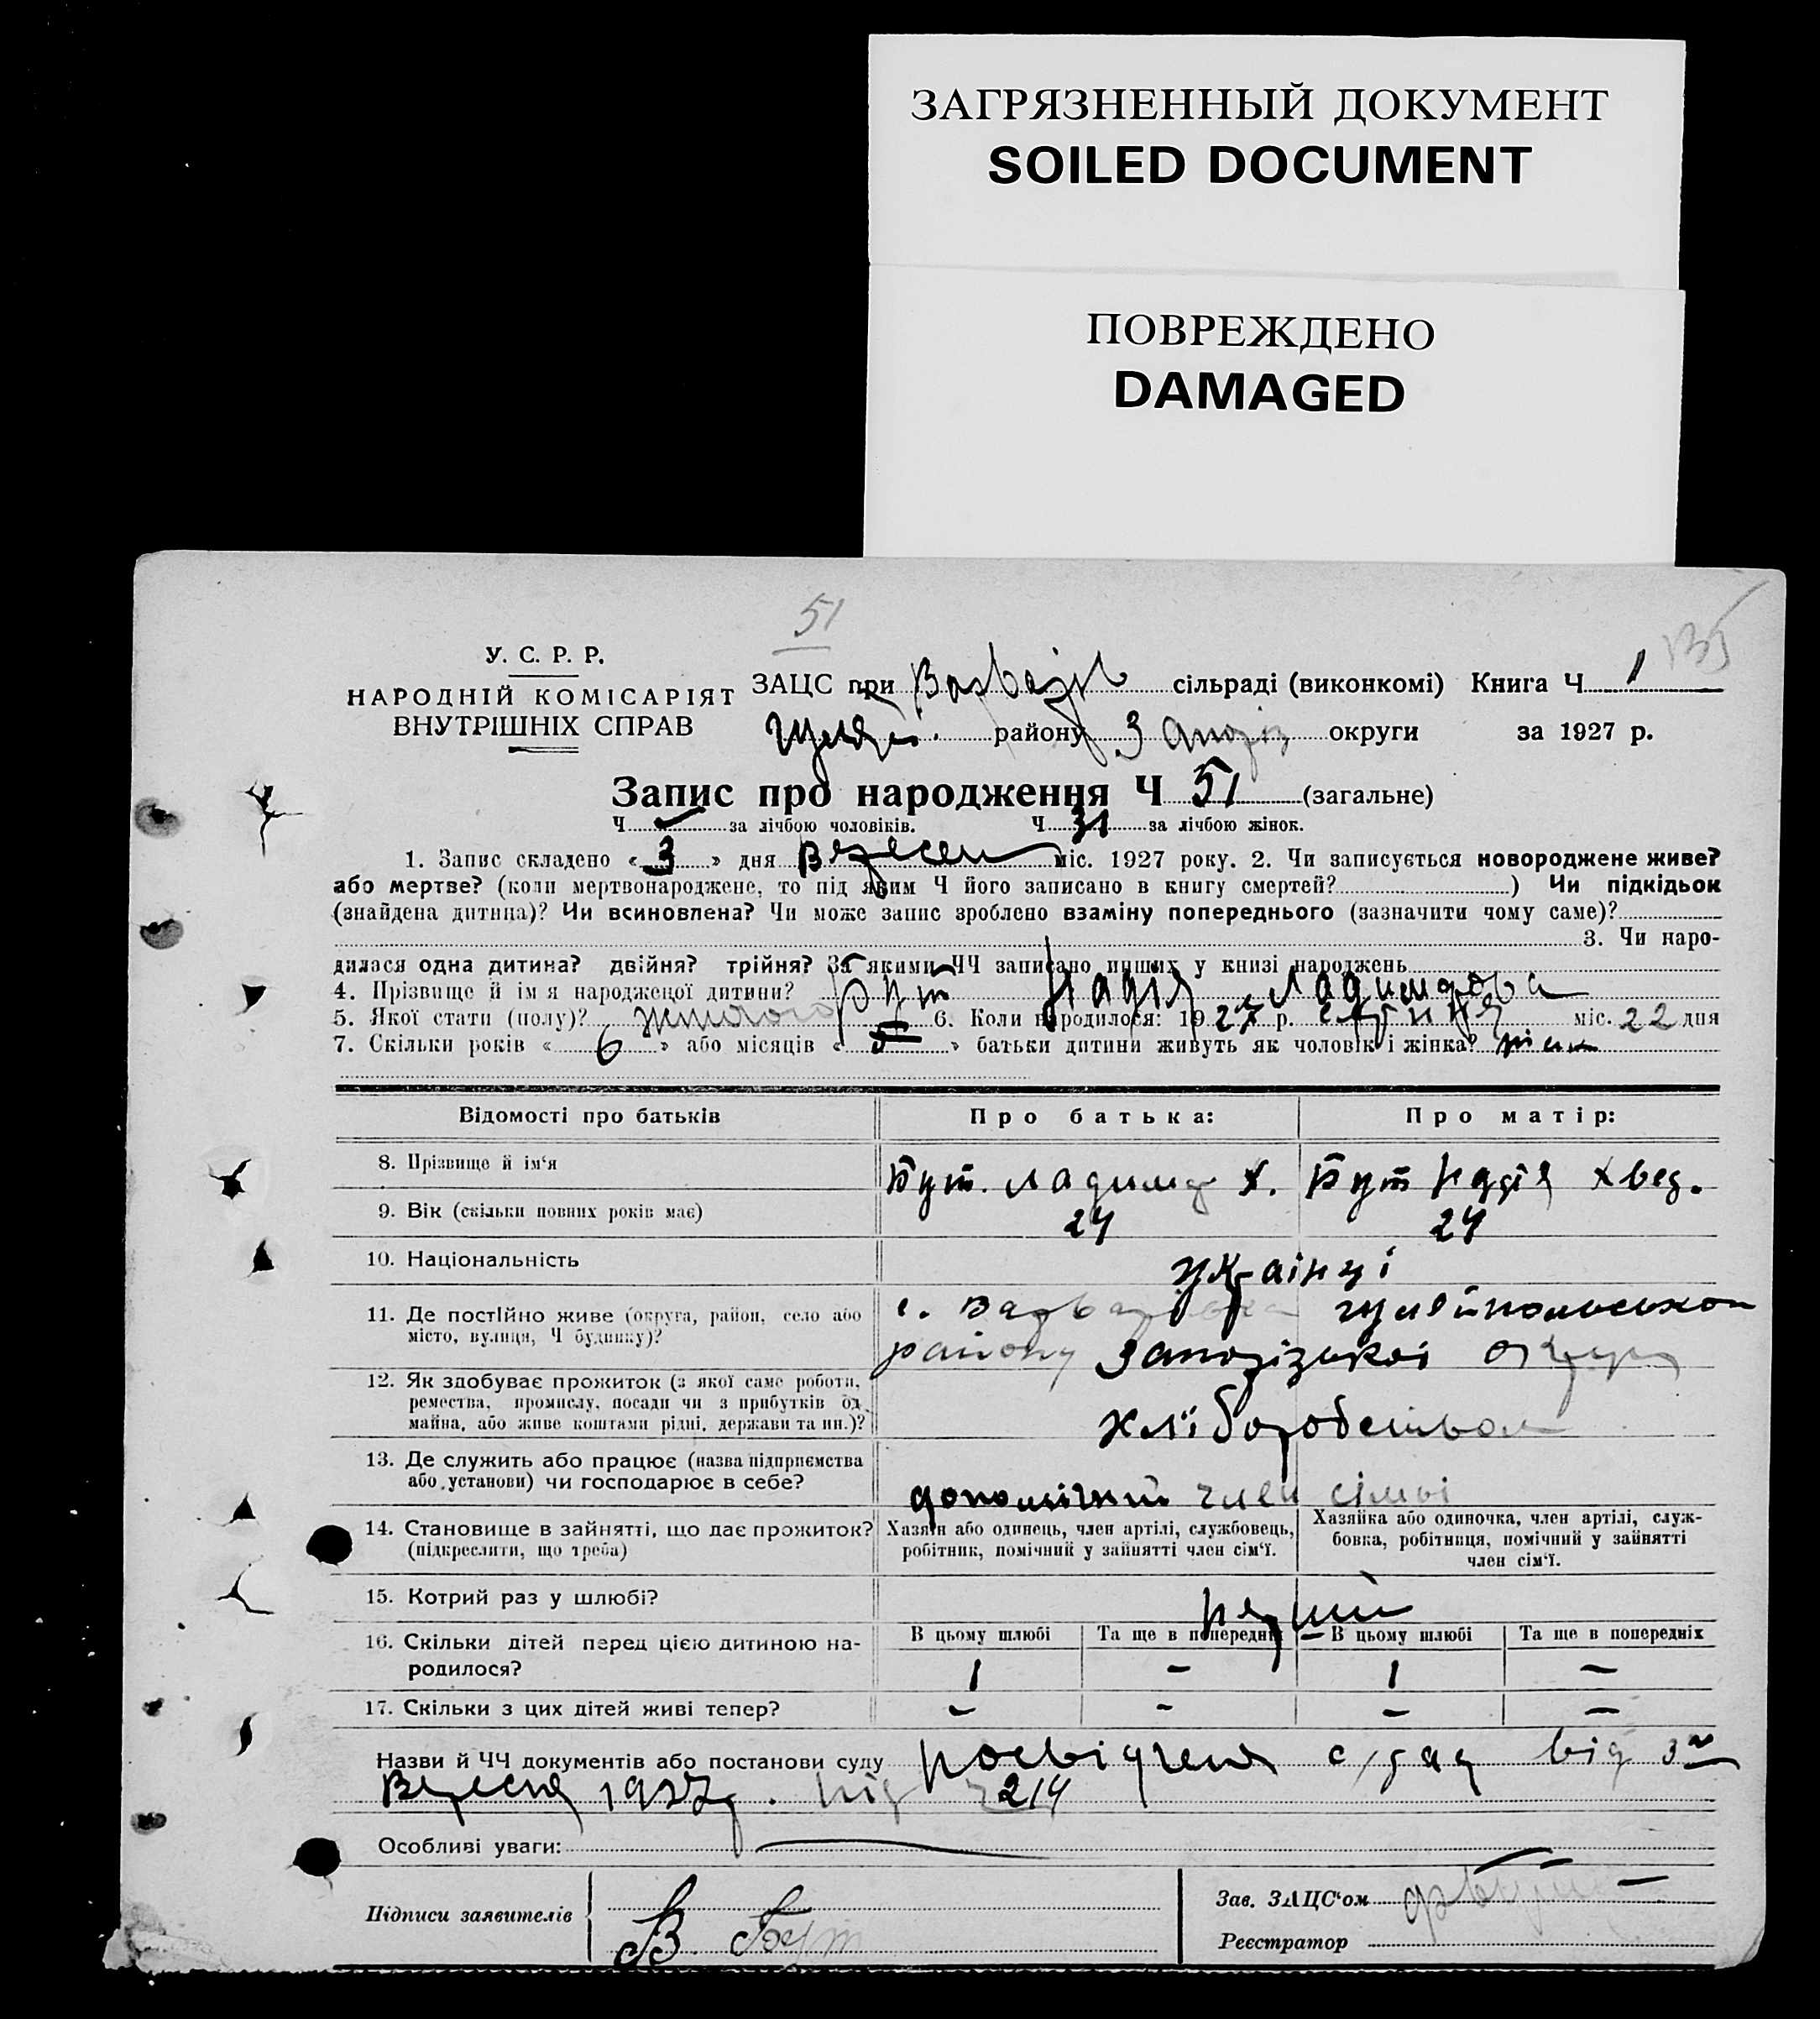 ЗАГРЯЗНЕННЫЙ ДОКУМЕНТ
SOILED DOCUMENT
ПОВРЕЖДЕНО
DAMAGED
51
135
У. С. Р. Р.
НАРОДНІЙ КОМІСАРІЯТ
ВНУТРІШНІХ СПРАВ
ЗАЦС при сільраді (виконкомі) Книга Ч 1
Гуляй. району Запоріз округи за 1927 р.
Запис про народження Ч 51 (загальне)
Ч за лічбою чоловіків. Ч 31 за лічбою жінок.
1. Запис складено « 3 » дня Вересня міс. 1927 року. 2. Чи записується новороджене живе?
або мертве? (коли мертвонароджене, то під яким Ч його записано в книгу смертей? ) Чи підкідьок
(знайдена дитина)? Чи всиновлена? Чи може запис зроблено взаміну попереднього (зазначити чому саме)?
3. Чи наро-
дилася одна дитина? двійня? трійня? За якими ЧЧ записано инших у книзі народжень
4. Прізвище й ім я народженої дитини? Бут Надія Ладимирова
5. Якої стати (полу)? жиночого 6. Коли народилося: 1927 р. серпня міс. 22 дня
7. Скільки років « 6 » або місяців « 5 » батьки дитини живуть як чоловік і жінка?
Відомості про батьків Про батька: Про матір:
8. Прізвище й ім'я Бут. Ладимир Х. Бут Надія Хвед.
9. Вік (скільки повних років має) 24 24
10. Національність українці
11. Де постійно живе (округа, район, село або
місто, вулиця, Ч будинку)?
с. Варварівка Гуляйпольського
району Запорізькоі округи
12. Як здобуває прожиток (з якої саме роботи,
ремества, промислу, посади чи з прибутків од
майна, або живе коштами рідні, держави та ин.)?
хліборобством
13. Де служить або працює (назва підприємства
або установи) чи господарює в себе?
допомічний член сімьі
14. Становище в зайнятті, що дає прожиток?
(підкреслити, що треба)
Хазяїн або одинець, член артілі, службовець,
робітник, помічний у зайнятті член сім'ї.
Хазяйка або одиночка, член артілі, служ-
бовка, робітниця, помічний у зайнятті
член сім'ї.
15. Котрий раз у шлюбі? перший
16. Скільки дітей перед цією дитиною на-
родилося?
В цьому шлюбі Та ще в попередніх В цьому шлюбі Та ще в попередніх
1 - 1 -
17. Скільки з цих дітей живі тепер? - - - -
Назви й ЧЧ документів або постанови суду посвідченя с/рад від 3го
Вересня 1927р. під ч 214
Особливі уваги:
Підписи заявителів В. Бут
Зав. ЗАЦС'ом
Реєстратор